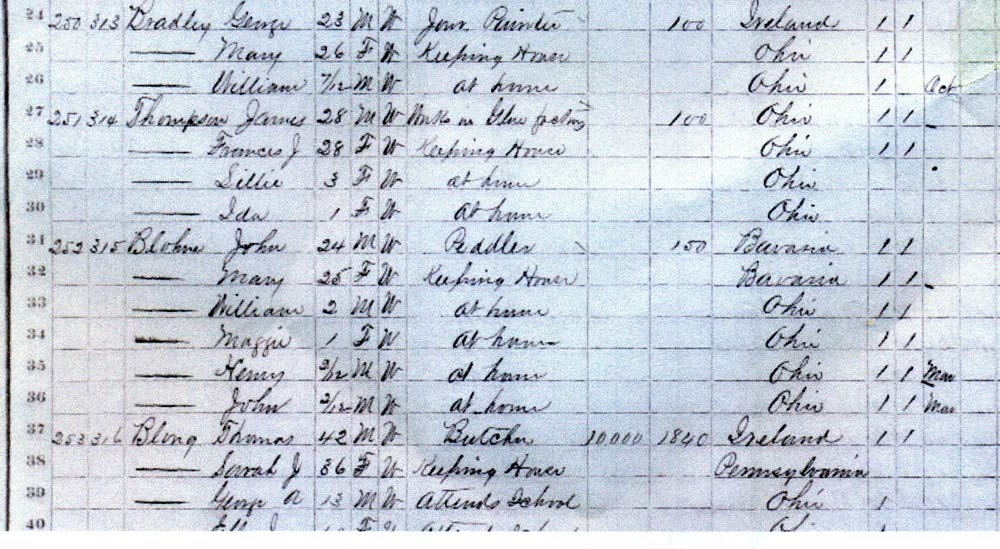 24 250 313 Bradley George 23 M W Jour. Painter 100 Ireland 1 1
25 —— Mary 26 F W Keeping House Ohio 1 1
26 —— William 7/12 M W at home Ohio 1 Oct
27 251 314 Thompson James 28 M W Works in Glue factory 100 Ohio 1 1
28 —— Frances J 28 F W Keeping House Ohio 1 1
29 —— Lillie 3 F W at home Ohio
30 —— Ida 1 F W at home Ohio
31 252 315 John 24 M W Peddler 150 Bavaria 1 1
32 —— Mary 25 F W Keeping House Bavaria 1 1
33 —— William 2 M W at home Ohio 1 1
34 —— Maggie 1 F W at home Ohio 1 1
35 —— Henry 2/12 M W at home Ohio 1 1 Mar
36 —— John 2/12 M W at home Ohio 1 1 Mar
37 253 316 Blong Thomas 42 M W Butcher 10,000 1840 Ireland 1 1
38 —— Sarah J 36 F W Keeping House Pennsylvania
39 —— George A 13 M W Attends School Ohio 1
40